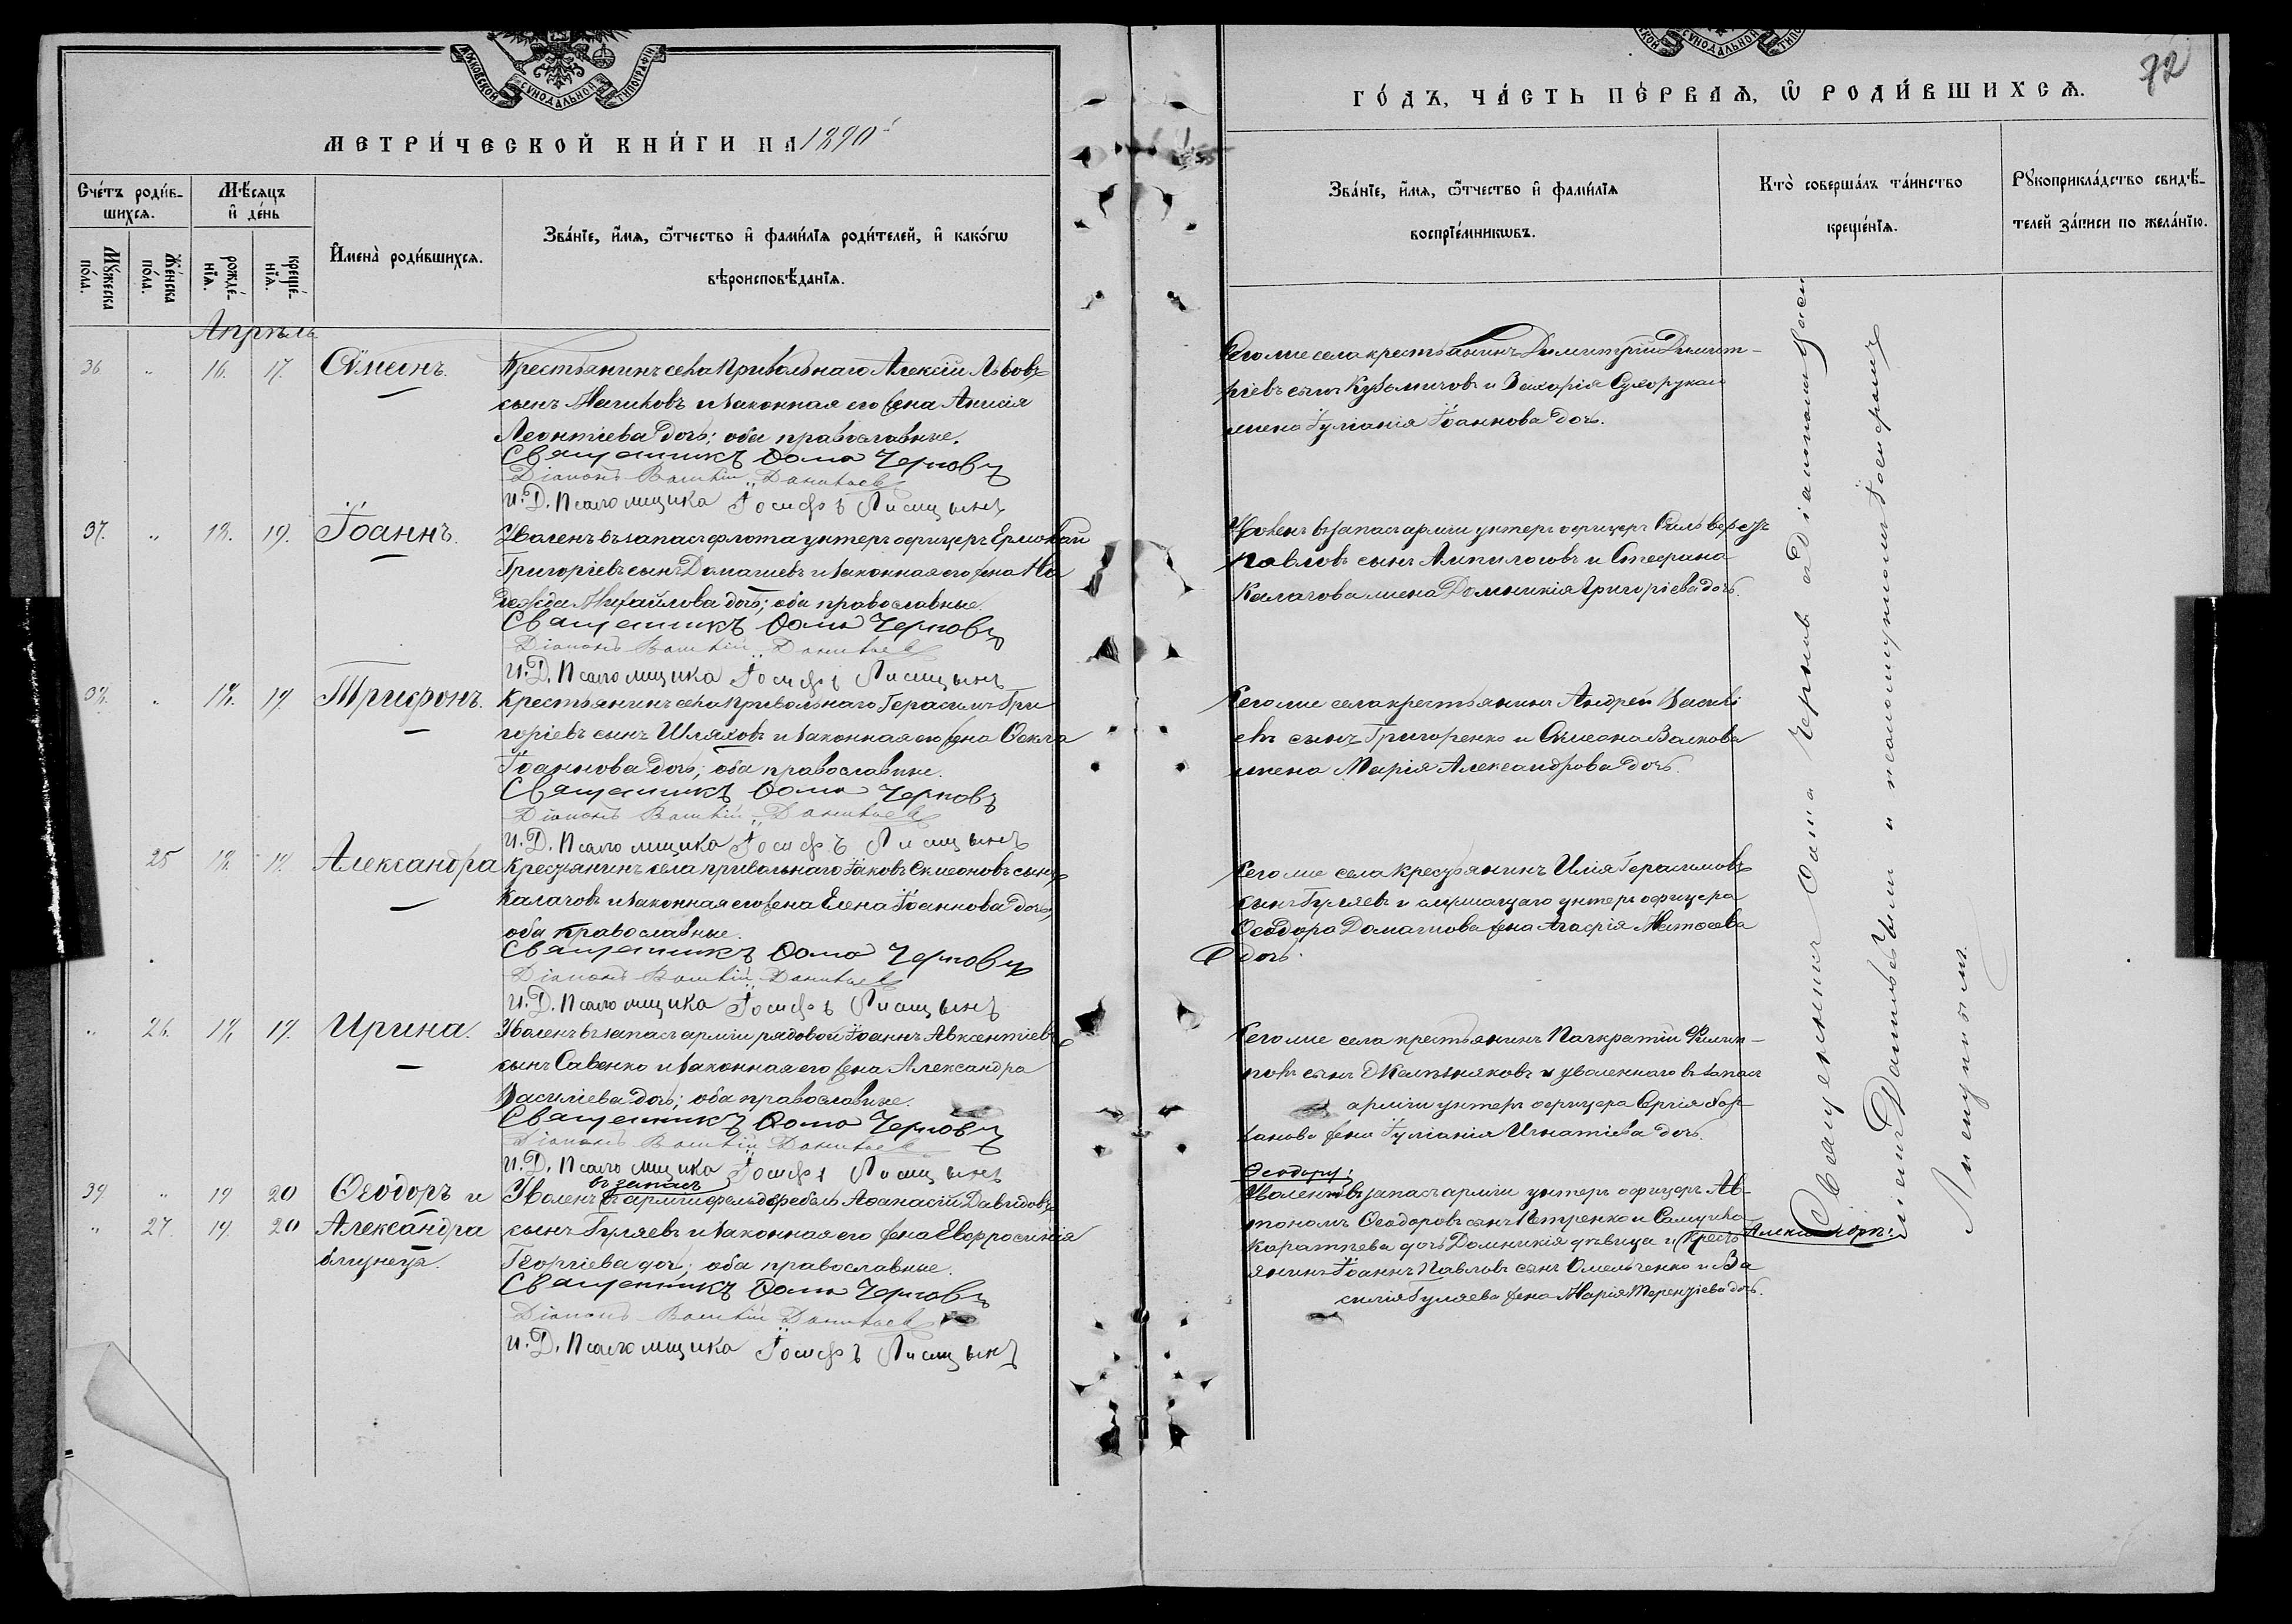 МОСКОВСКОЙ СѴНОДАЛЬНОЙ ТИПОГРАФІИ
МЕТРИ́ЧЕСКОЙ КНИ́ГИ НА 1890
Сче́тъ роди́в-
шихсѧ.
Мѣ́сѧцъ
и҆ де́нь
Мꙋ́жеска
по́ла.
Же́нска
по́ла.
рожде́-
нїѧ.
креще́-
нїѧ.
И҆мена̀ роди́вшихсѧ.
Зва́нїе, и҆́мѧ, ѻ҆́тчество и҆ фами́лїѧ роди́телей, и҆ како́гѡ
вѣроисповѣ́данїѧ.
Апрѣль
36 „ 16. 17. Сѵмеонъ.
Крестьянинъ села Привольнаго Алексій Львовъ
сынъ Масиковъ и законная его жена Анисія
Леонтіева дочь; оба православные.
Священникъ Ѳома Черновъ
Діаконъ Василій Данильевъ
И. Д. Псаломщика Іосифъ Лисицынъ
37. „ 18. 19. Іоаннъ.
Уволенъ въ запасъ флота унтеръ офицеръ Ермолай
Григоріевъ сынъ Домашевъ и законная его жена На
дежда Михайлова дочь; оба православные.
Священникъ Ѳома Черновъ
Діаконъ Василій Данильевъ
И. Д. Псаломщика Іосифъ Лисицынъ
38. „ 18. 19. Трифонъ.
Крестьянинъ села Привольнаго Герасимъ Гри
горіевъ сынъ Шляховъ и законная его жена Ѳекла
Іоаннова дочь; оба православные.
Священникъ Ѳома Черновъ
Діаконъ Василій Данильевъ
И. Д. Псаломщика Іосифъ Лисицынъ
25 18. 19. Александра
Крестьянинъ села Привольнаго Іаковъ Сѵмеоновъ сынъ
Калачовъ и законная его жена Елена Іоаннова дочь;
оба православные.
Священникъ Ѳома Черновъ
Діаконъ Василій Данильевъ
И. Д. Псаломщика Іосифъ Лисицынъ
„ 26. 18. 19. Ирина.
Уволенъ въ запасъ арміи рядовой Іоаннъ Авксентіевъ
сынъ Савенко и законная его жена Александра
Василіева дочь; оба православные.
Священникъ Ѳома Черновъ
Діаконъ Василій Данильевъ
И. Д. Псаломщика Іосифъ Лисицынъ
въ запасъ
39 „ 19 20 Ѳеодоръ и
Уволенъ арміи фельдфебель Аѳанасій Давидовъ
„ 27. 19. 20 Александра
сынъ Гуляевъ и законная его жена Евфросинія
близнецы.
Георгіева дочь; оба православные.
Священникъ Ѳома Черновъ
Діаконъ Василій Данильевъ
И. Д. Псаломщика Іосифъ Лисицынъ
СѴНОДАЛЬНОЙ
72
ГО́ДЪ, ЧА́СТЬ ПЕ́РВАѦ, Ѡ҆ РОДИ́ВШИХСѦ.
Зва́нїе, и҆́мѧ, ѻ҆́тчество и҆ фами́лїѧ
воспрїе́мникѡвъ.
Кто̀ соверша́лъ та́инство
креще́нїѧ.
Рꙋкоприкла́дство свидѣ́-
телей за́писи по жела́нїю.
Того же села крестьянинъ Димитрій Димит-
ріевъ сынъ Кузьмичовъ и Захарія Сухорукаго
жена Іуліанія Іоаннова дочь.
Уволенъ въ запасъ арміи унтеръ офицеръ Сильвестръ
Павловъ сынъ Ампилоговъ и Стефана
Калачова жена Домникія Григоріева дочь.
Того же села крестьянинъ Андрей Василі
евъ сынъ Григоренко и Сѵмеона Валкова
жена Марія Александрова дочь.
Того же села крестьянинъ Илія Герасимовъ
сынъ Гуляевъ и служащаго унтеръ офицера
Ѳеодора Домашова жена Агафія Матѳеева
дочь.
Того же села крестьянинъ Панкратій Филип-
повъ сынъ и уволеннаго въ запасъ
арміи унтеръ офицера Сергія
жена Іуліанія Игнатіева дочь.
Ѳеодора:
Уволенъ въ запасъ арміи унтеръ офицеръ Ав-
тономъ Ѳеодоровъ сынъ Петренко и Самуила
Каратаева дочь Домникія дѣвица и Александры: Кресть
янинъ Іоаннъ Павловъ сынъ Омельченко и Ва
силія Гуляева жена Марія Терентіева дочь.
Священникъ Ѳома Черновъ съ діакономъ Васи
ліемъ Данильевымъ и псаломщикомъ Іосифомъ
Лисицынымъ.